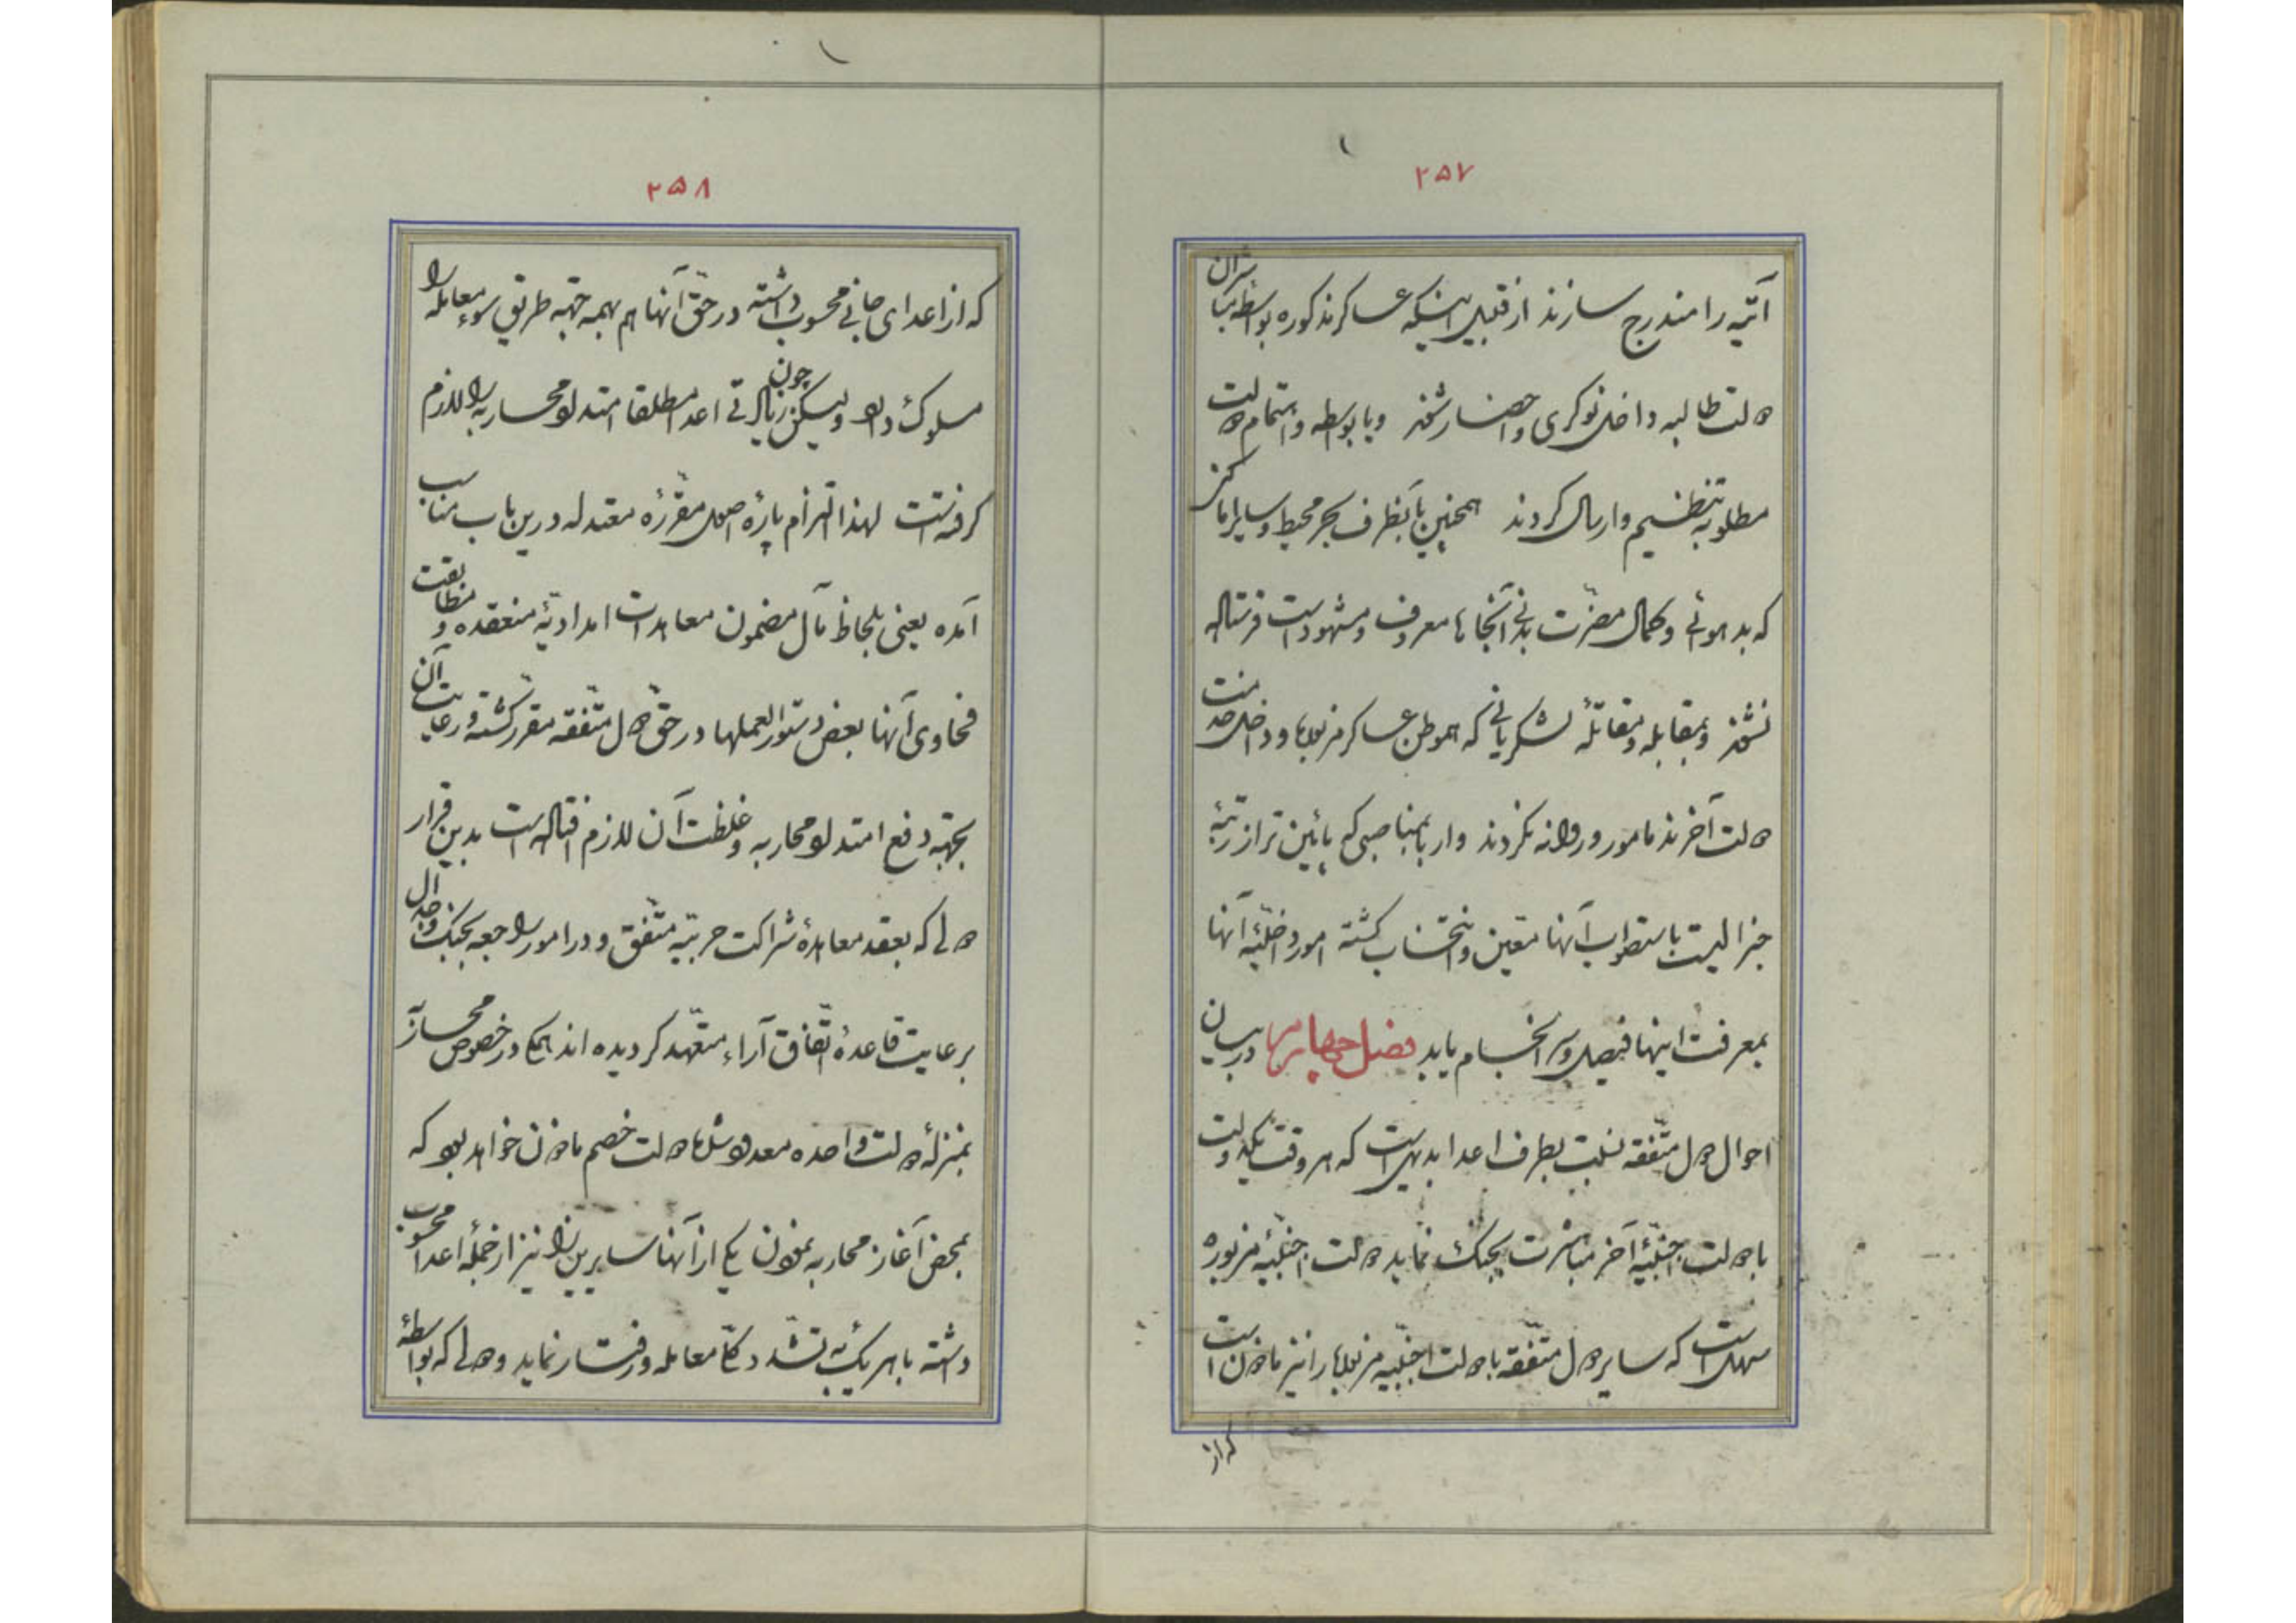 ۲۵۷
آتیه را مندرج سازند از قبیل اینکه عساکر مذکوره بواسطه مباشران
دولت طالبه داخل نوکری و احضار شوند و یا بواسطه و اهتمام دولت
مطلوبه تنظیم و ارسال گردند همچنین بآنطرف بحر محیط و سایر اماکنی
که بد هوائی و کمال مضرت بدنی آنجاها معروف و مشهود است فرستاده
نشوند و بمقابله و مقاتلهٔ لشکریانی که هموطن عساکر مزبوره و داخل خدمت
دولت آخرند مامور و روانه نگردند و ارباب مناصبی که پائین تر از رتبهٔ
جنرالیست باستصواب آنها متعین و انتخاب گشته امور داخلیهٔ آنها
بمعرفت اینها فیصل و سرانجام یابد فصل چهارم در بیان
احوال دول متفقه نسبت بطرف اعدا بدیهی است که هر وقت یکدولت
با دولت اجنبیهٔ آخر مباشرت بجنک نماید دولت اجنبیهٔ مزبوره
سهل است که سایر دول متفقه با دولت اجنبیه مزبوره را نیز ماذون است
که از
۲۵۸
که از اعدای جانی محسوب داشته در حق آنها هم بهمه جهة طریق سوء معامله را
مسلوک دارد ولیکن چون زیادتی اعدا مطلقا امتداد محاربه را لازم
گرفته است لهذا التزام پارهٔ اصول مقررهٔ معتدله درین باب مناسب
آمده یعنی بلحاظ مآل مضمون معاهدات امدادیهٔ منعقده و مطابقت
فحاوی آنها بعض دستورالعملها در حق دول متفقه مقرر گشته و رعایت آن
بجهة دفع امتداد محاربه و غلظت آن لازم افتاده است بدین قرار
دولی که بعقد معاهدهٔ شراکت حربیه متفق و در امور راجعه بجنک و جدال
برعایت قاعدهٔ اتفاق آراء متعهد گردیده اند همگی در خصوص محاربه
بمنزلهٔ دولت واحده معدود شده دولت خصم ماذون خواهد بود که
بمحض آغاز محاربه بمعاون یکی از آنها سایرین را نیز از جملهٔ اعدا محسوب
داشته با هر یک به تشدد کلا معامله و رفتار نماید و دولی که بواسطهٔ